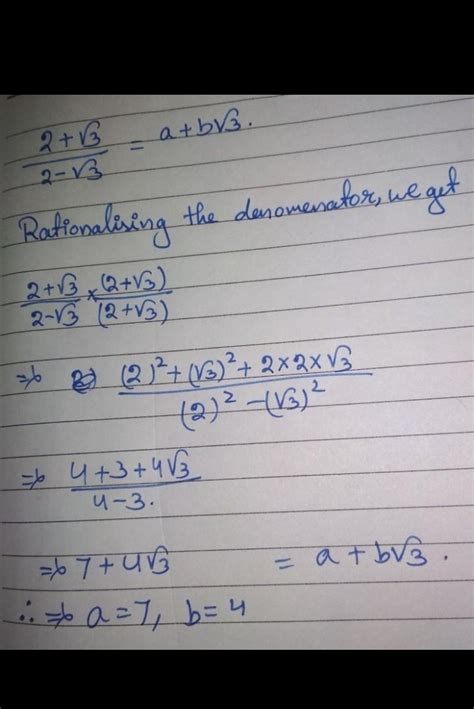 (2+√3)/(2-√3) = a+b√3.
Rationalising the denomenator, we get
(2+√3)/(2-√3) × (2+√3)/(2+√3)
⇒ ((2)²+(√3)²+2×2×√3)/((2)²-(√3)²)
⇒ (4+3+4√3)/(4-3.)
⇒ 7+4√3 = a+b√3.
∴ ⇒ a=7, b=4